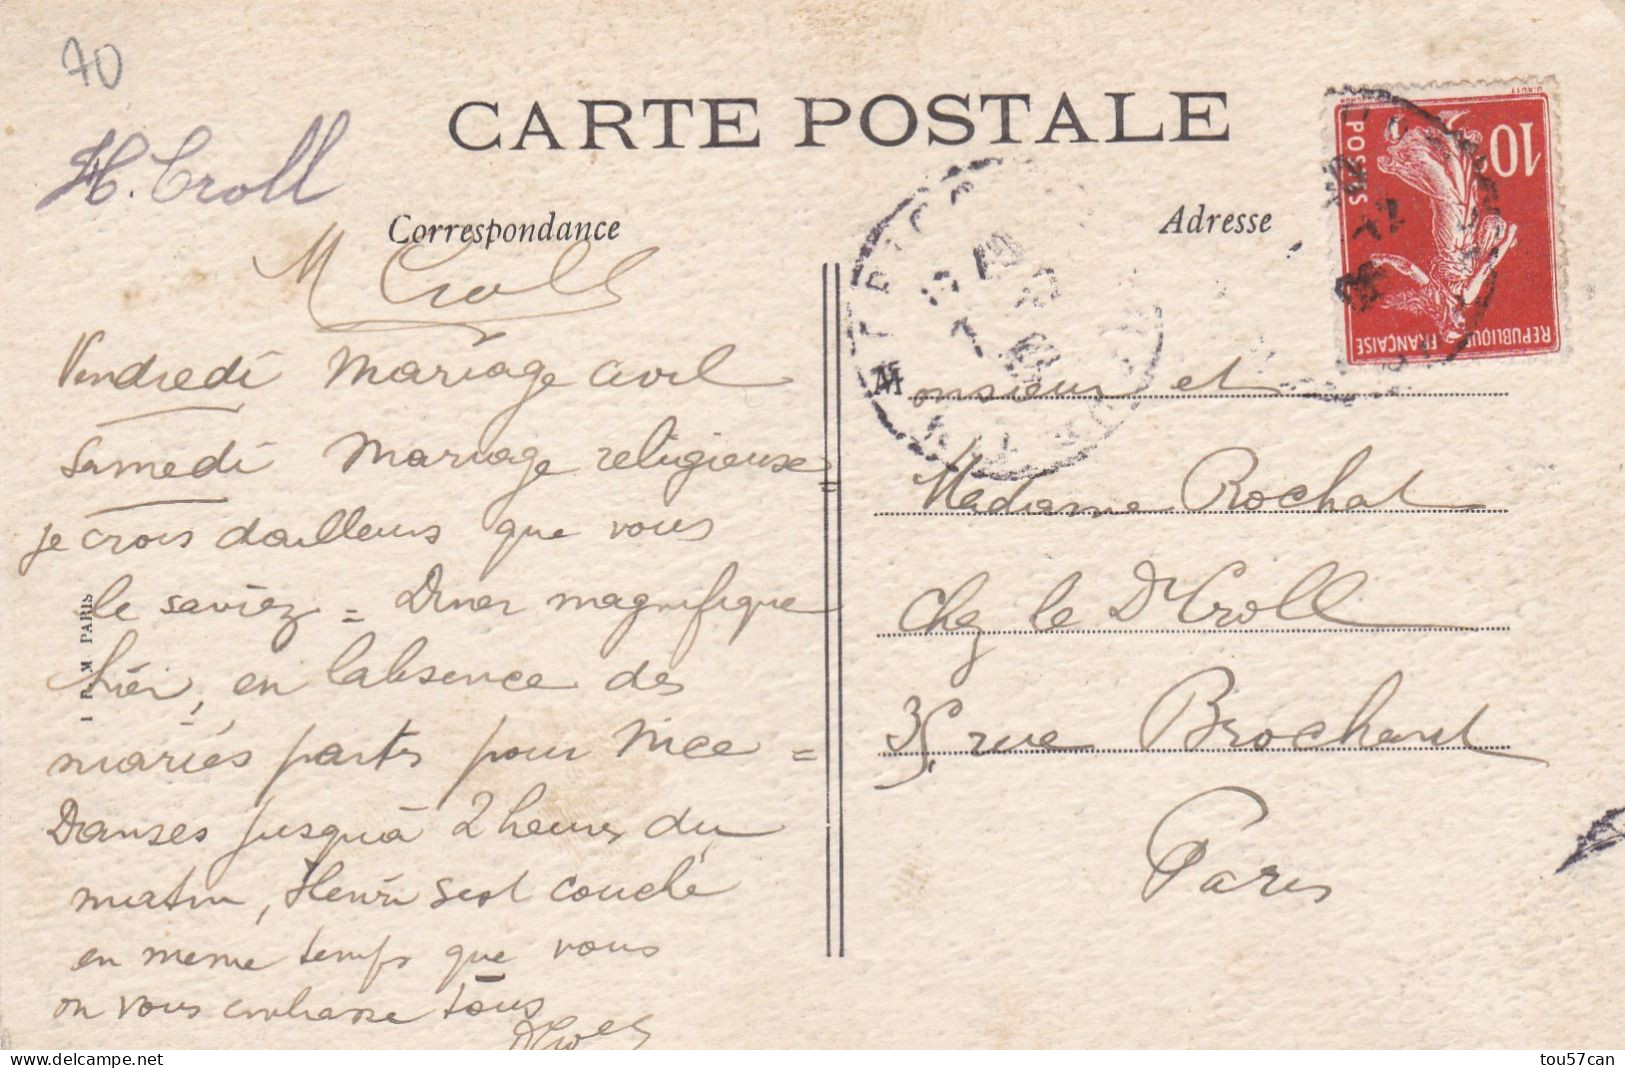 70
CARTE POSTALE
H. Croll
Correspondance
Adresse
M Croll
Vendredi mariage civil
Samedi mariage religieuse =
je crois dailleurs que vous
le saviez = Diner magnifique
hier, en l'absence des
mariés partis pour Nice =
Danses jusqu'à 2 heures du
matin, Henri sest couché
en meme temps que vous
on vous embrasse tous
DCroll
I P M PARIS
Monsieur et
Madame Rochat
chez le Dr Croll
35, rue Brochant
Paris
10
POSTES
REPUBLIQUE FRANÇAISE
delcampe.net
tou57can